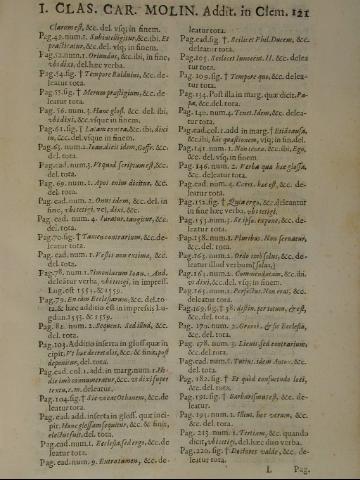 I. CLAS. CAR. MOLIN. Addit. in Clem. 121
Clarum est, &c. del. vsq; in finem.
Pag. 49. num. 1. Subintelligitur, &c. ibi. Et
practicatur, &c. del. vsq. in finem.
Pag. 52. num. 1. Oriundus, &c. ibi, in fine,
vbi dixi, del. hæc verba.
Pag. 54. sig. † Tempore Balduini, &c. de-
leatur tota.
Pag. 55. sig. † Merum prastigium, &c. de-
leatur tota.
Pag. 56. num. 3. Hanc glos. &c. del. ibi,
vbi dixi, &c. vsque in finem.
Pag. 61. sig. † Laicum contra, &c. ibi, dixi
in, &c. del. vsque in finem.
Pag. 63. num. 2. Ioan. dicit idem, Gaff. &c.
del. tota.
Pag. ead. num. 3. Vt quod scriptum est, &c.
del. tota.
Pag. 69. num. 1. Apes enim dicitur, &c.
del. tota.
Pag. ead. num. 2. Omn. idem, &c. del. in
fine, vbi tetigi, vel, dixi, &c.
Pag. ead. num. 4. Caratur, tangitur, &c.
del. tota.
Pag. 70. sig. † Tamen contrarium, &c. de-
leatur tota.
Pag. ead. num. 1. Vt eos non eximo, &c.
del. tota.
Pag. 78. num. 1. Simoniacum Ioan. And.
deleatur verba, vbi tetigi, in impress.
Lug. est 1553. & 1559.
Pag. 79. En dum Ecclesiarum, &c. del. to-
ta. & hæc additio est in impressis Lu-
gdun. 1553. & 1559.
Pag. 82. num. 2. Sequens. Sed illud, &c.
del. tota.
Pag. 103. Additio inserta in gloss. quæ in-
cipit. Et hæ decretales, &c. & finit, post
deponitur, del. tota.
Pag. ead. col. 1. add. in marg. num. 1. Ho-
die imò connumeratur, &c. vt dixi super
textu, c. m. deleatur.
Pag. 104. sig. † Sic vocat Othonem, &c. de-
leatur tota.
Pag. ead. add. inserta in gloss. quæ inci-
pit. Hanc glossam sequitur, &c. & finit,
electus fuit. del. tota.
Pag. ead. num. 1. Ecclesia, sed ergo, &c. de-
leatur tota.
Pag. ead. num. 9. Extraneum, &c. de-
leatur tota.
Pag. ead. sig. † Scilicet Phil. Ducem, &c.
deleatur tota.
Pag. 105. Scilicet Innocent. II. &c. delea-
tur tota.
Pag. 109. sig. † Tempore quo, &c. delea-
tur tota.
Pag. 134. Post illa in marg. quæ dicit. Pa-
pa, &c. del. tota.
Pag. 140. num. 4. Tenet. Idem, &c. delea-
tur tota.
Pag. ead. col. 1. add in marg. † Et idcausa,
&c. ibi, hac quæstionem, vsq; in fin. del.
Pag. 141. num. 1. Non tenet. &c. ibi, Ego,
&c. del. vsq; in finem
Pag. 146. num. 2. Verba quæ hæc glossa,
&c. deleatur tota.
Pag. ead. num. 4. Certè. hæc est, &c. de-
leatur tota.
Pag. 152. sig. † Quia ergo, &c. deleantur
in fine hæc verba, vbi tetigi.
Pag. 153. num. 5. Et ipso. expone, &c. de-
leatur tota.
Pag. 158. num. 1. Pluribus. Non seruatur,
&c. del. tota.
Pag. 163. num. 1. Ordo imò salus, &c. de-
leatur illud verbum (salus,)
Pag. 163. num. 2. Commendatam, &c. ibi.
vt dixi, &c. vsque in finem.
Pag. 163. num. 1. Perfectus. Non erat, &c.
deleatur tota.
Pag. 169. sig. † 38. distin. per totum, & est,
&c. del. tota.
Pag. 173. num. 2. Graui, & sic Ecclesia,
&c. del. tota.
Pag. 178. num. 3. Licuit. sed contrarium,
&c. del. tota.
Pag. ead. num. 6. Tutius. idem Autor. &c.
del. tota.
Pag. 182. sig. † Et quid consuetudo loci,
&c. del. tota.
Pag. 191. sig. † Barbarissimus est, &c. de-
leatur.
Pag. 191. num. 1. Illicet. hæc verum, &c.
del. tota.
Pag. 213. num. 1. Tertium, &c. quando
dicit, vbi tetigi, del. hæc duo verba.
Pag. 220. sig. † Doctores valde, &c. de-
leatur tota.
L Pag.